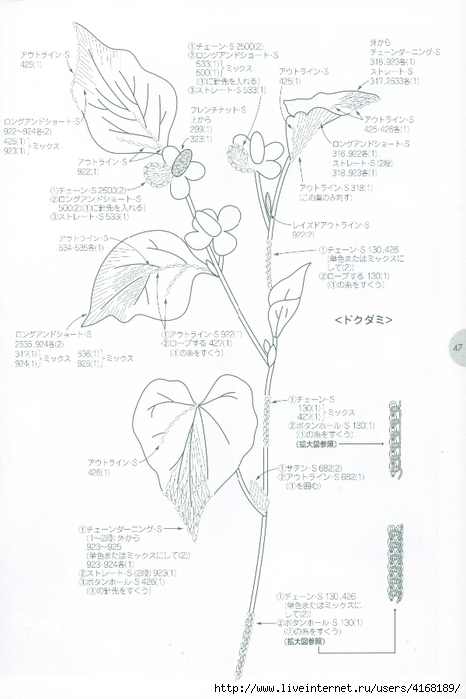 ①チェーン・S 2500(2)
②ロングアンドショート・S
533(1)
500(1)
ミックス
(①に針先を入れる)
③ストレート・S 533(1)
アウトライン・S
425(1)
外から
チェーンダーニング・S
318.923各(1)
ストレート・S
317.2533各(1)
アウトライン・S
425(1)
フレンチナット・S
上から
299(1)
323(1)
アウトライン・S
425・426各(1)
ロングアンドショート・S
922~924各(2)
425(1)
923(1)
ミックス
ロングアンドショート・S
316.922各(1)
ストレート・S (2段)
318.923各(1)
アウトライン・S
922(1)
アウトライン・S 318(1)
(この葉のみ刺す)
①チェーン・S 2500(2)
②ロングアンドショート・S
500(2)(①に針先を入れる)
③ストレート・S 533(1)
レイズドアウトライン・S
922(2)
アウトライン・S
534・535各(1)
①チェーン・S 130.426
(単色またはミックスに
して(2))
②ロープする 130(1)
(①の糸をすくう)
<ドクダミ>
47
ロングアンドショート・S
2535.924各(2)
317(1)
924(1)
ミックス
536(1)
925(1)
ミックス
①アウトライン・S 922(1)
②ロープする 427(1)
(①の糸をすくう)
①チェーン・S
130(1)
427(1)
ミックス
②ボタンホール・S 130(1)
(①の糸をすくう)
(拡大図参照)
アウトライン・S
426(1)
①サテン・S 682(2)
②アウトライン・S 682(1)
(①を囲む)
①チェーンダーニング・S
(1~2段) 外から
923~925
(単色またはミックスにして(2))
923・924各(1)
②ストレート・S (2段) 923(1)
③ボタンホール・S 426(1)
(①の針先をすくう)
①チェーン・S 130.426
(単色またはミックスに
して(2))
②ボタンホール・S 130(1)
(①の糸をすくう)
(拡大図参照)
http://www.liveinternet.ru/users/4168189/